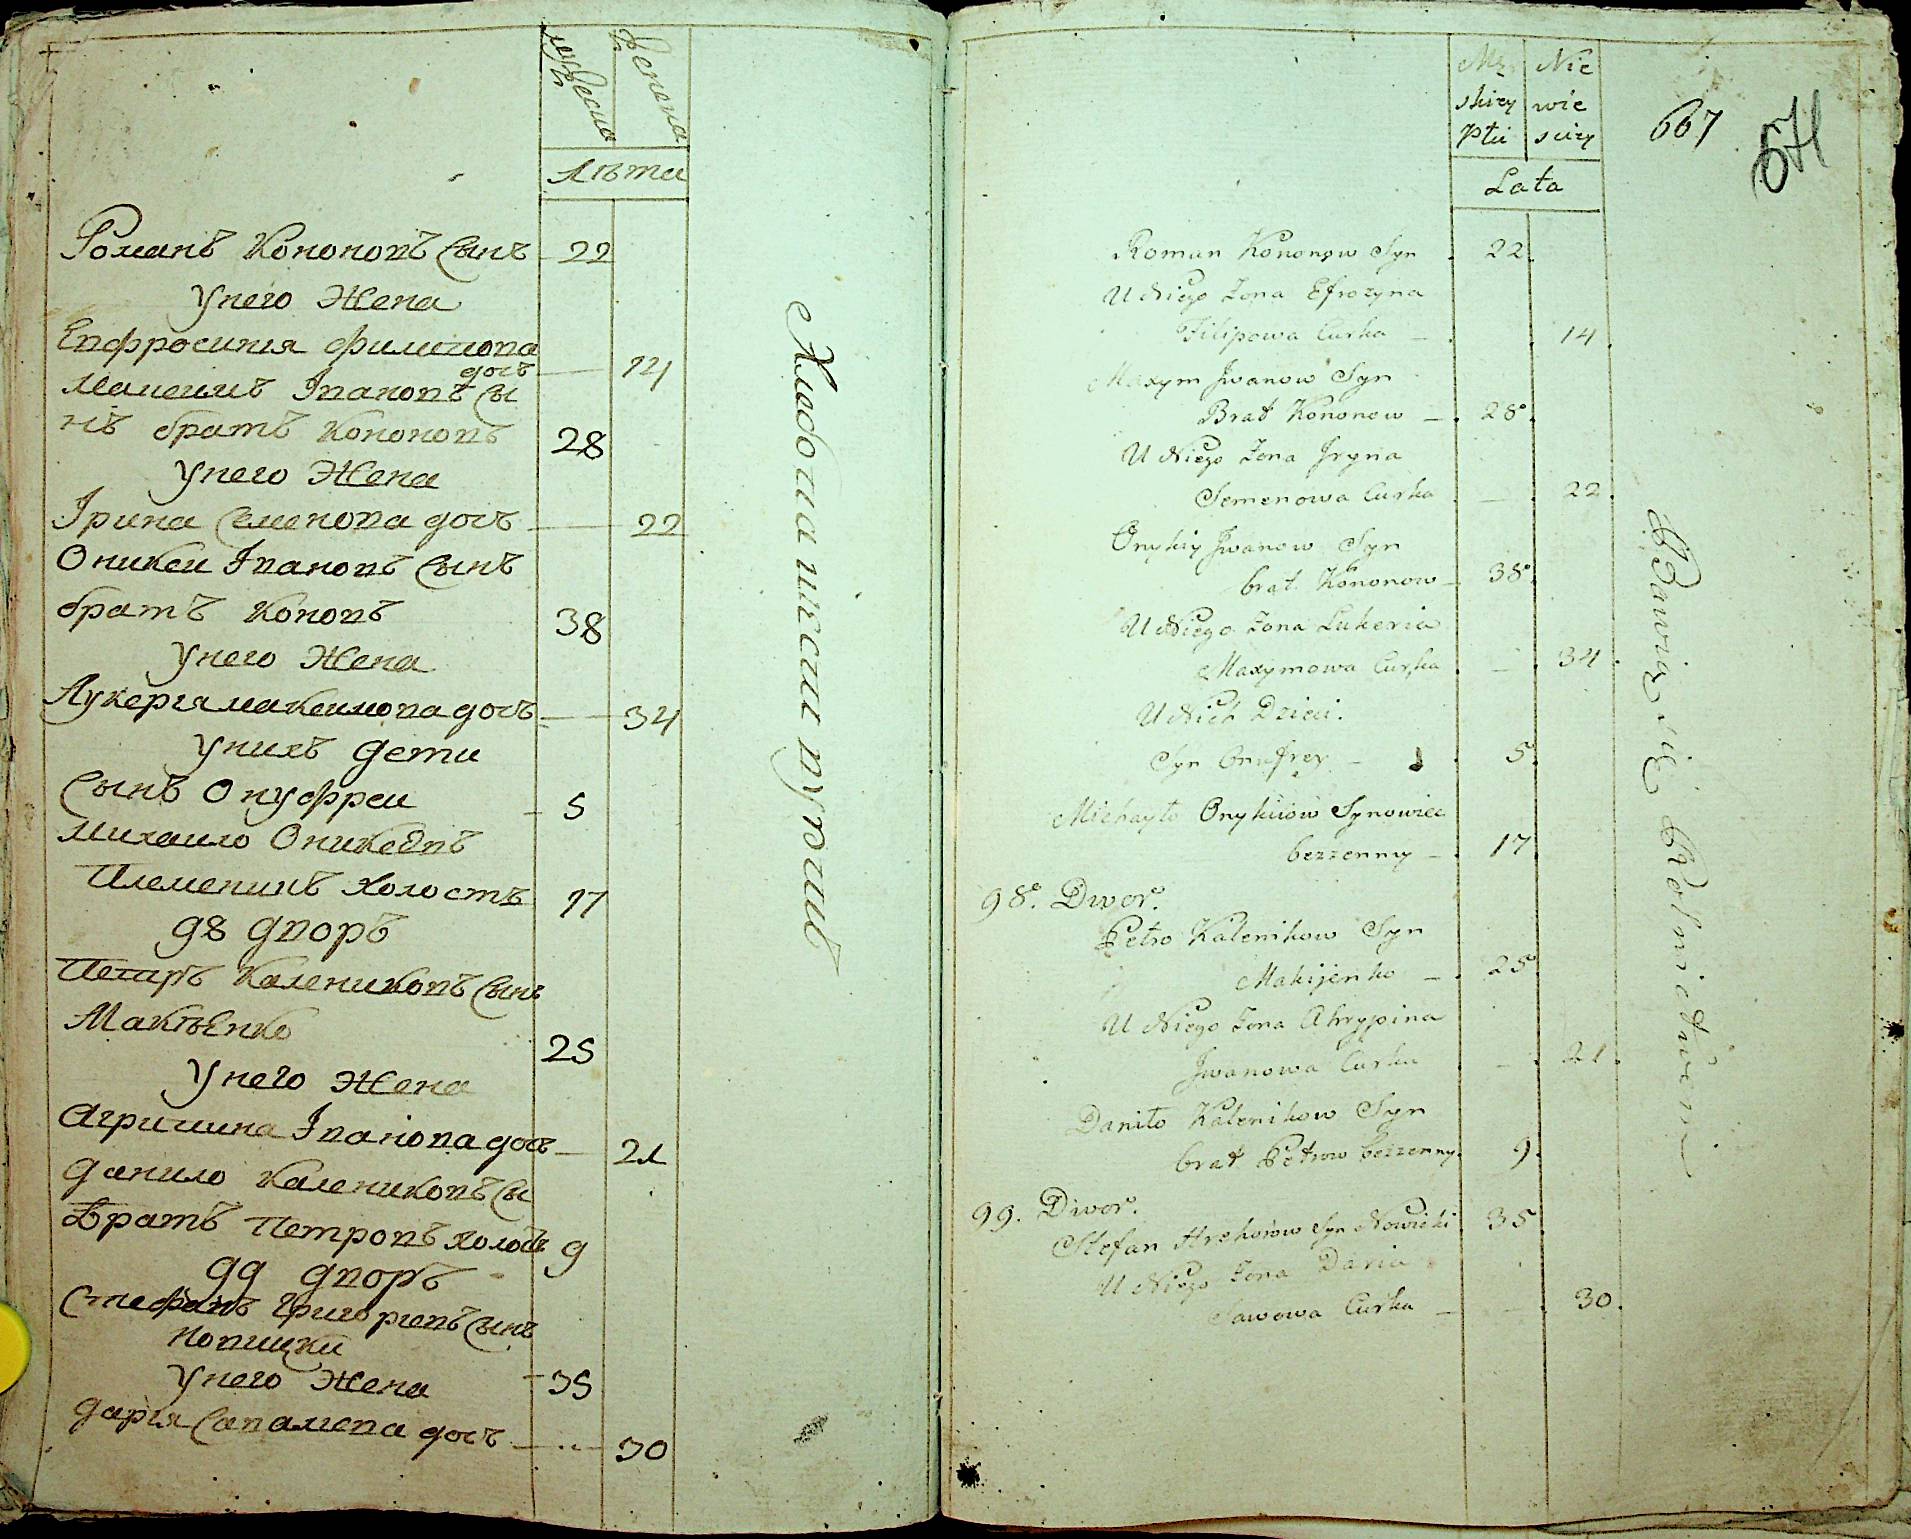 мужеска
женска
Лѣта
Романъ Кононовъ сынъ 22
У него Жена
Евфросиния Филипова
дочь 14
Максимъ Ивановъ сы
нъ братъ Кононовъ 28
У него Жена
Ирина Семенова дочь 22
Оникеи Ивановъ сынъ
братъ Кононъ 38
У него Жена
Лукерия максимова дочь 34
У нихъ дети
Сынъ Онуфреи 5
Михаило Оникеевъ
Племеникъ холостъ 17
98 дворъ
Петръ Калениковъ сынъ
Макѣенко 25
У него Жена
Агрипина Иванова дочь 21
данило Калениковъ сы
Братъ Петровъ холостъ 9
99 дворъ
Стефанъ Григориевъ сынъ
Новицки
У него Жена 35
дария Савалиева дочь 30
Хлебопашествуютъ
Mę Nie
skiey wie
Płci sciey
Lata
667
671
Roman Kononow Syn 22
U Niego Zona Efrozyna
Filipowa Curka 14
Maxym Jwanow Syn
Brat Kononow 28
U Niego Zona Jryna
Semenowa Curka 22
Onykiy Jwanow Syn
brat Kononow 38
U Niego Zona Lukeria
Maxymowa Curka 34
U Nich Dzieci.
Syn Onufrey 5
Michayło Onykiiow Synowiec
bezzenny 17
98. Dwor.
Petro Kalenikow Syn
Makijenko 25
U Niego Zona Ahrypina
Jwanowa Curka 21
Daniło Kalenikow Syn
brat Petrow bezzenny 9
99. Dwor.
Stefan Hrehorow Syn Nowicki 35
U Niego Zona Daria
Sawowa Curka 30
Bawią się Rolnictwem